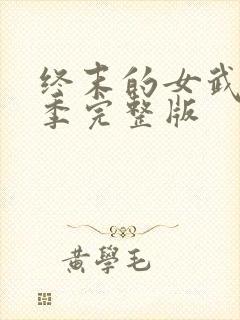 终末的女武
季完整版
黄學毛